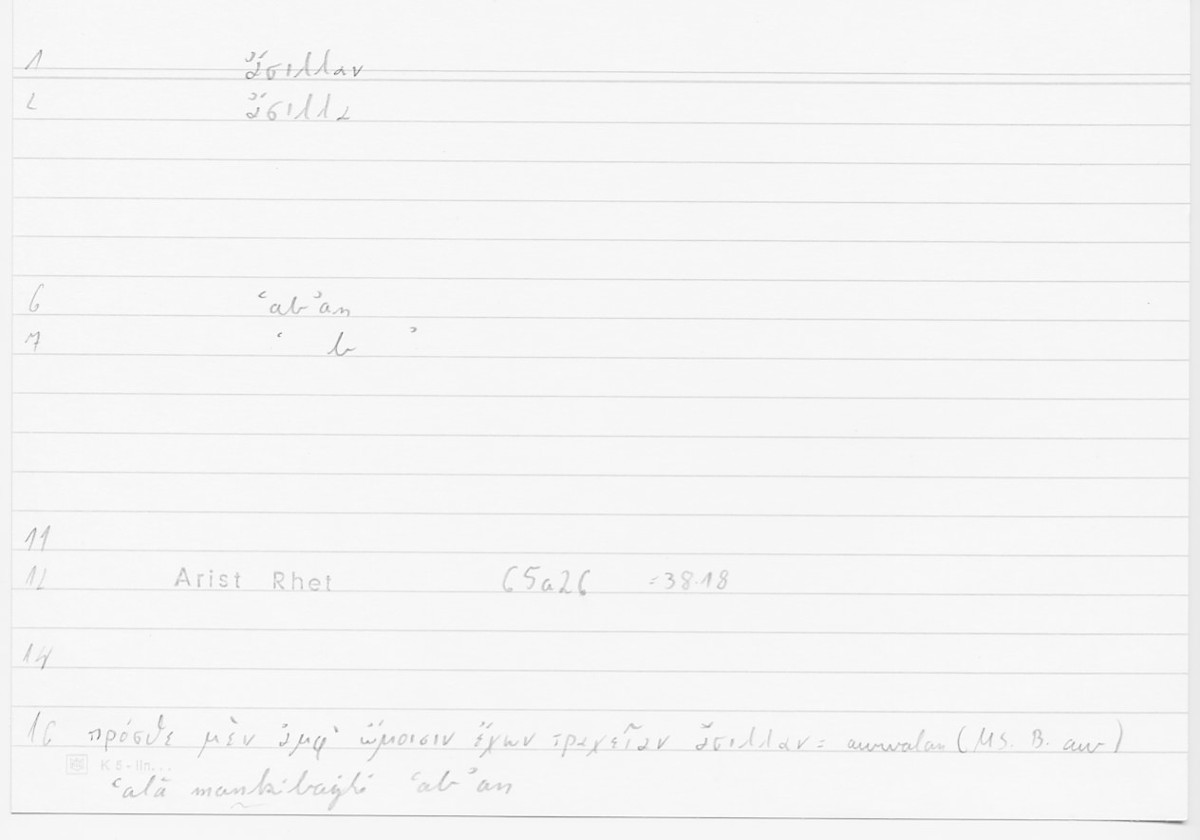 1 ἄσιλλαν
2 ἄσιλλα
6 ʿabʾan
7 ʿ b ʾ
11
12 Arist Rhet 65a26 =38.18
14
16 πρόσθε μὲν ἀμφ᾽ ὤμοισιν ἔχων τραχεῖαν ἄσιλλαν = awwalan (MS. B. aw)
ʿalā mankibayhi ʿabʾan